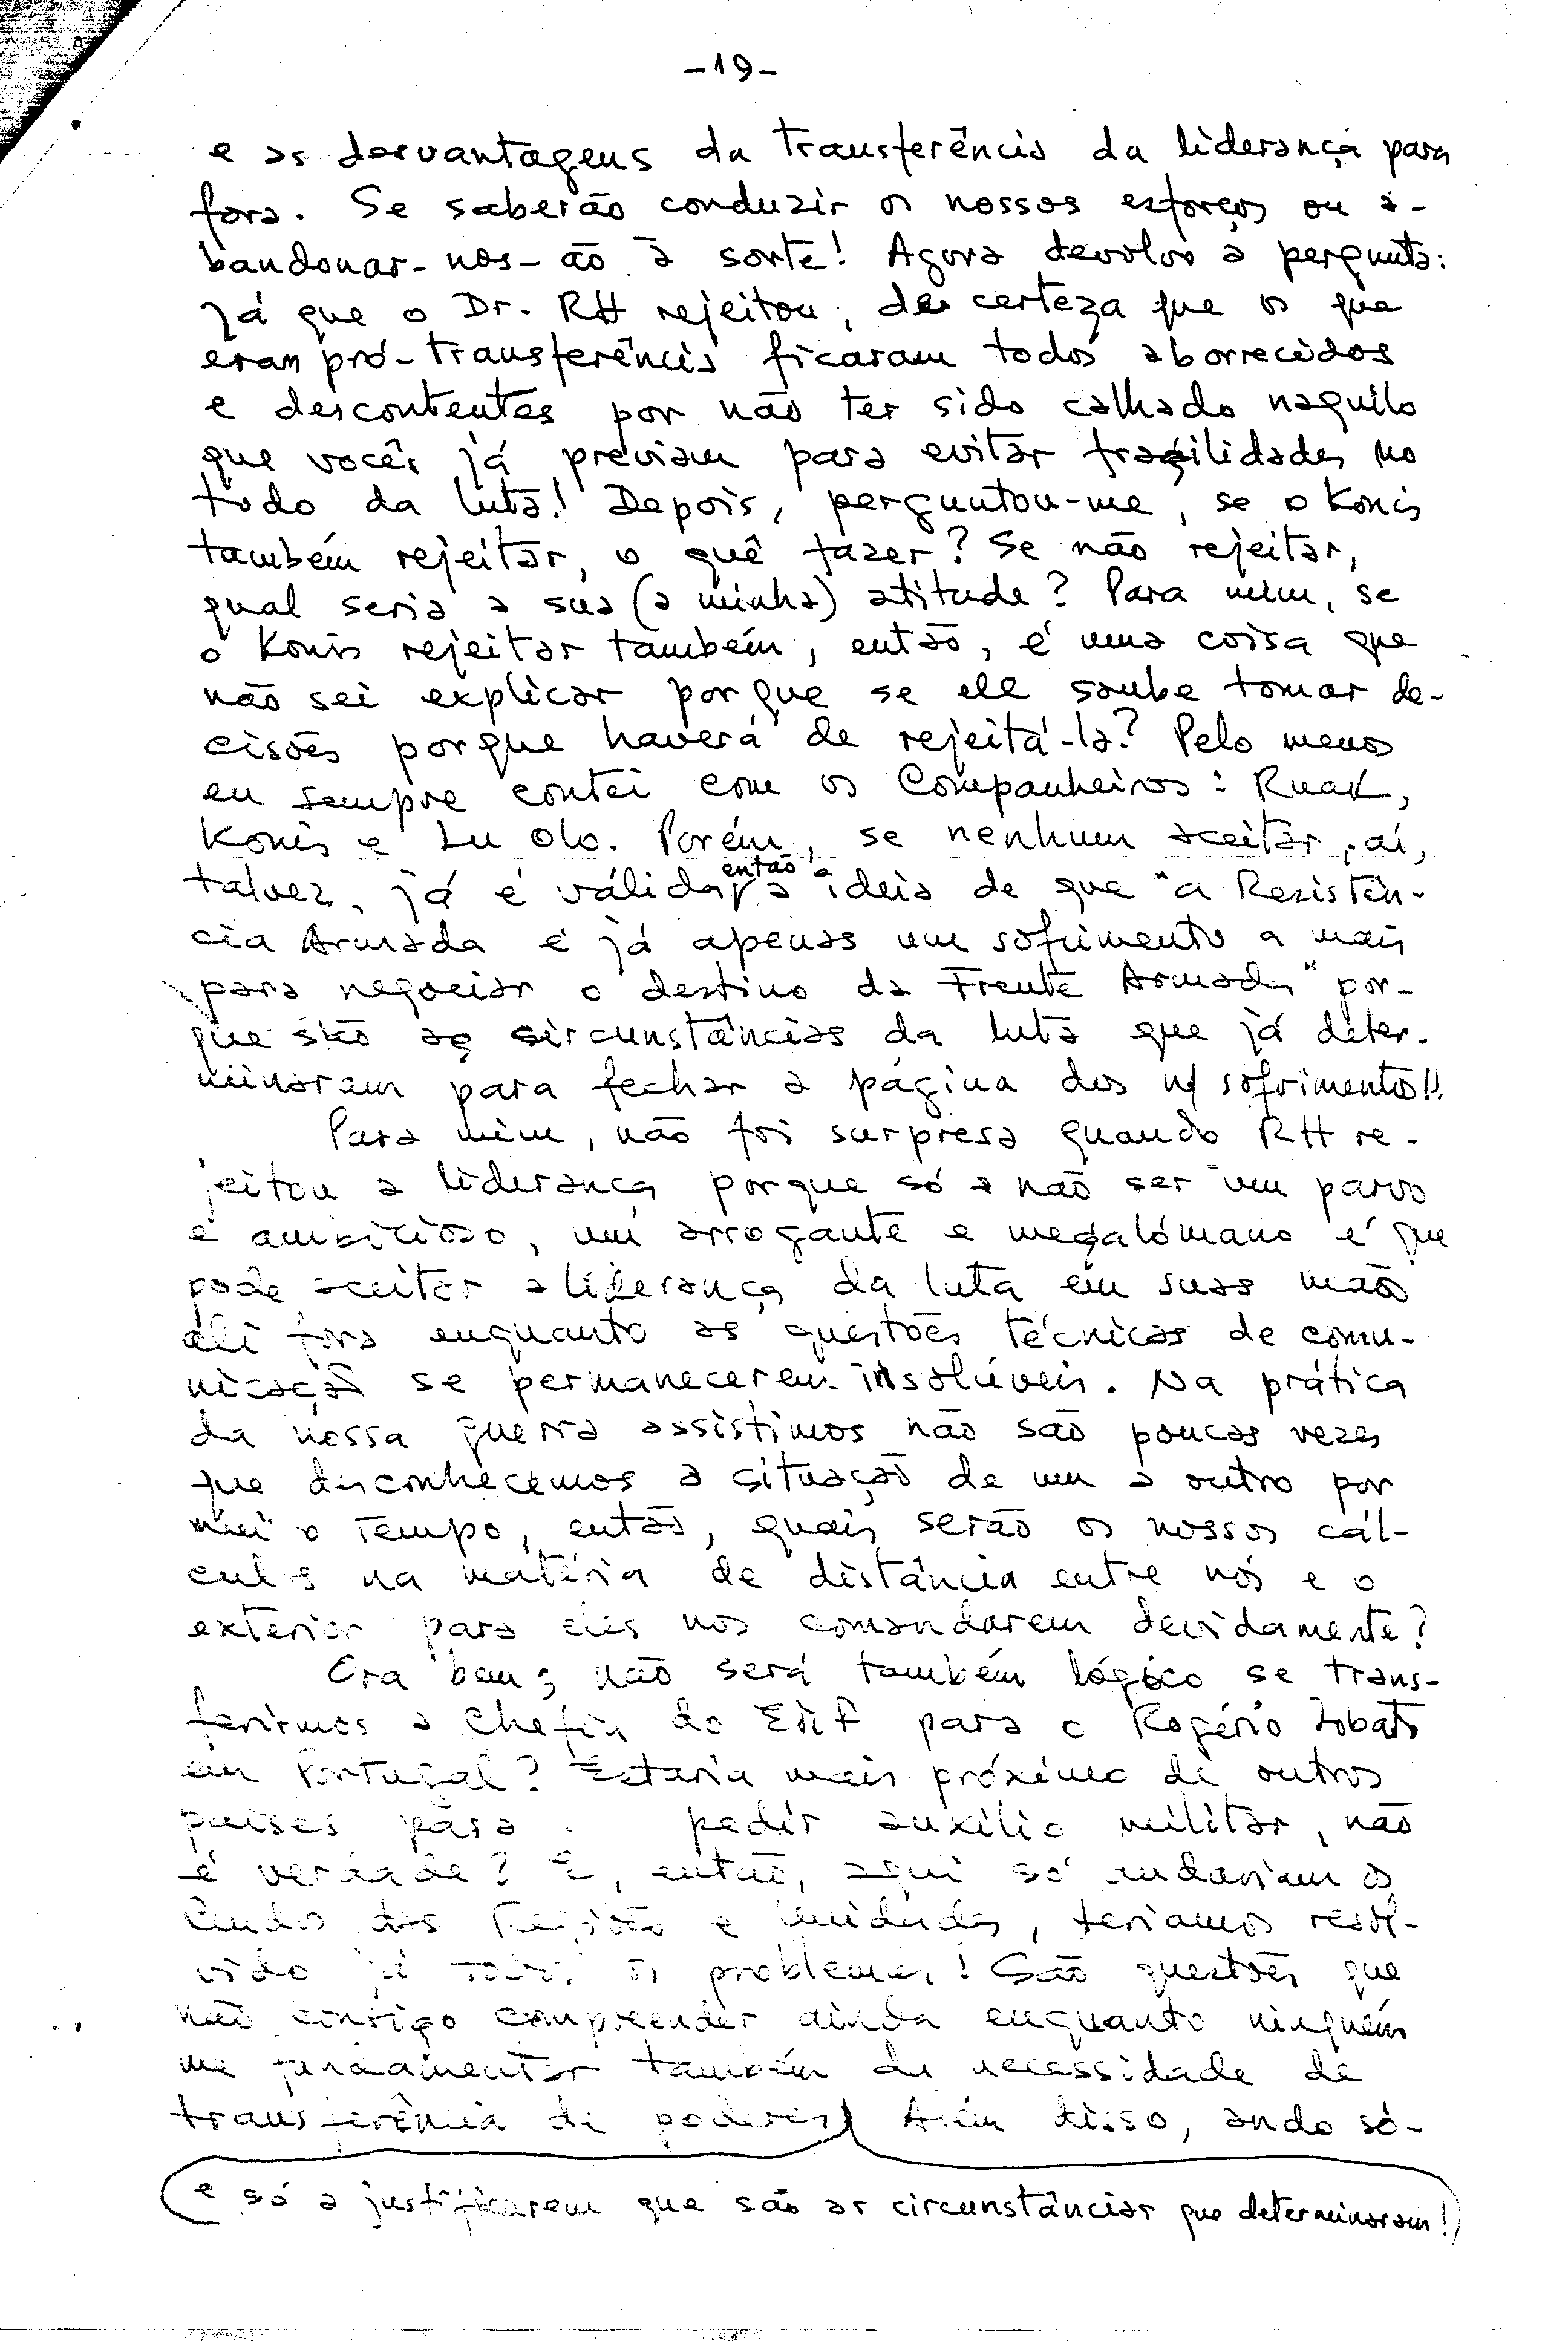 -19-
e as desvantagens da transferência da liderança para
fora. Se saberão conduzir os nossos esforços ou a-
bandonar-nos-ão à sorte! Agora devolvo a pergunta:
Já que o Dr. RH rejeitou, de certeza que os que
eram pró-transferência ficaram todos aborrecidos
e descontentes por não ter sido calhado naquilo
que vocês já previam para evitar fragilidades no
todo da luta! Depois, perguntou-me, se o Konis
também rejeitar, o quê fazer? Se não rejeitar,
qual seria a sua (a minha) atitude? Para mim, se
o Konis rejeitar também, então, é uma coisa que
não sei explicar porque se ele soube tomar de-
cisões porque haverá de rejeitá-la? Pelo menos
eu sempre contei com os Companheiros: Ruak,
Konis e Lu Olo. Porém, se nenhum aceitar, aí,
talvez, já é válida então a ideia de que "a Resistên-
cia Armada é já apenas um sofrimento a mais
para negociar o destino da Frente Armada" por-
que são as circunstâncias da luta que já deter-
minaram para fechar a página dos n/ sofrimentos!!
Para mim, não foi surpresa quando RH re-
jeitou a liderança porque só a não ser um parvo
e ambicioso, um arrogante e megalómano é que
pode aceitar a liderança da luta em suas mãos
ali fora enquanto as questões técnicas de comu-
nicação se permanecerem insolúveis. Na prática
da nossa guerra assistimos não são poucas vezes
que desconhecemos a situação de um a outro por
mui o tempo, então, quais serão os nossos cál-
culos na matéria de distância entre nós e o
exterior para eles nos comandarem devidamente?
Ora bem; não será também lógico se trans-
ferirmos a Chefia do EMF para o Rogério Lobato
em Portugal? Estaria mais próximo de outros
países para pedir auxílio militar, não
é verdade? E, então, aqui só andariam os
Cmdos das Regiões e Unidades, teríamos resol-
vido já todos os problemas! São questões que
não consigo compreender ainda enquanto ninguém
me fundamentar também da necessidade de
transferência de poderes Além disso, ando só-
e só a justificarem que são as circunstâncias que determinaram!)